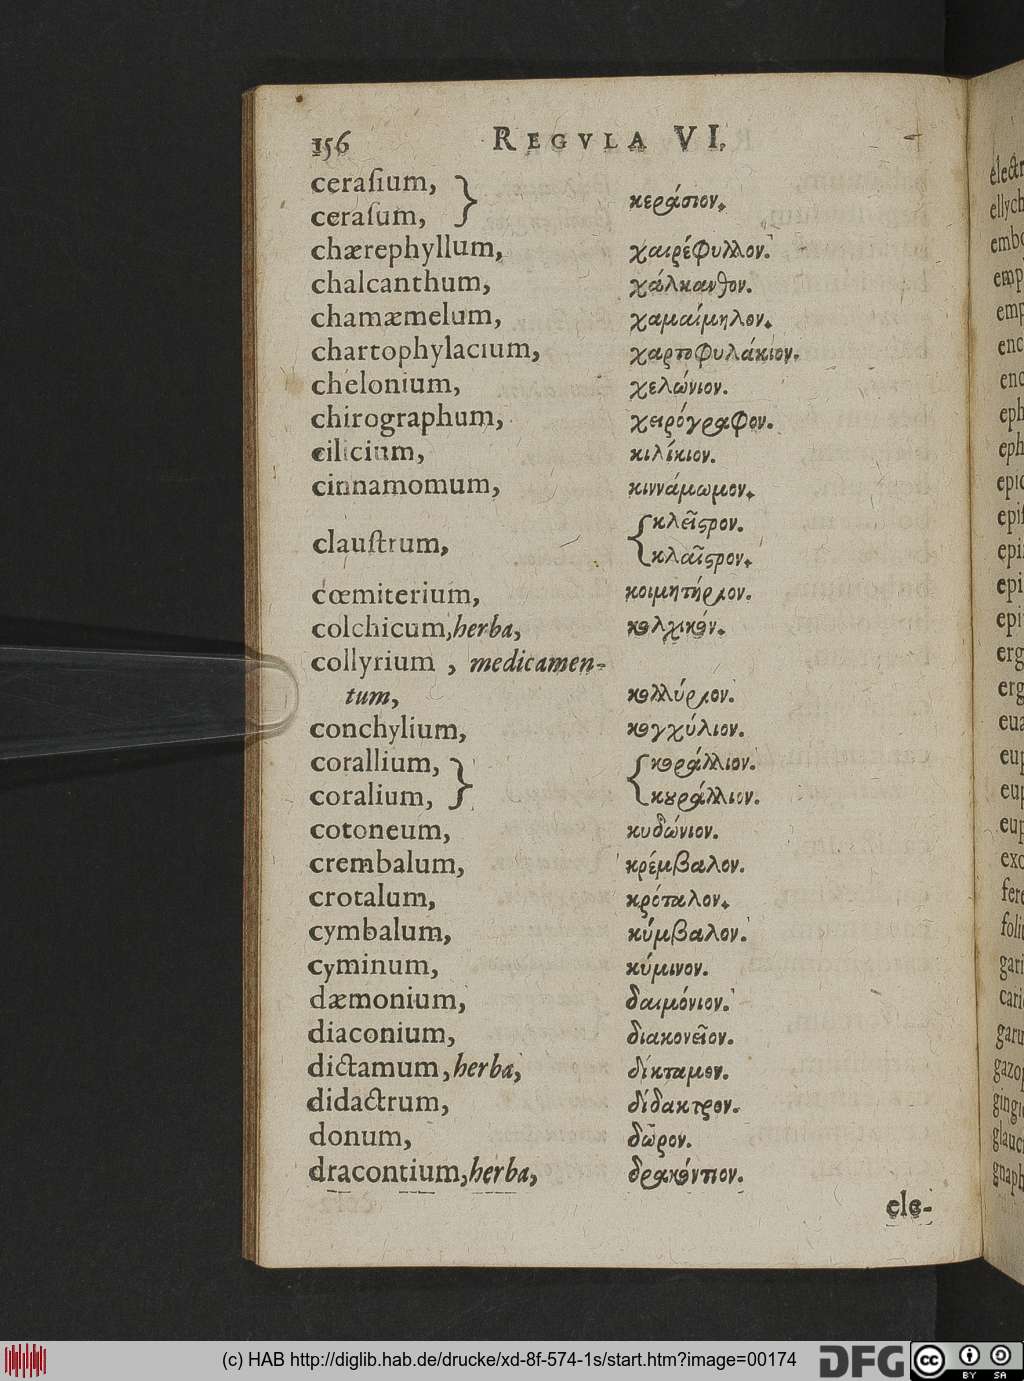 156 REGVLA VI.
ceraſium,
ceraſum, } κεράσιον.
chærephyllum, χαιρέφυλλον.
chalcanthum, χάλκανθον.
chamæmelum, χαμαίμηλον.
chartophylacium, χαρτοφυλάκιον.
chelonium, χελώνιον.
chirographum, χειρόγραφον.
cilicium, κιλίκιον.
cinnamomum, κιννάμωμον.
clauſtrum, { κλεῖϛρον.
κλαῖϛρον.
cœmiterium, κοιμητήριον.
colchicum, herba, κολχικόν.
collyrium , medicamen-
tum, κολλύριον.
conchylium, κογχύλιον.
corallium, } { κοράλλιον.
coralium, κουράλλιον.
cotoneum, κυδώνιον.
crembalum, κρέμβαλον.
crotalum, κρόταλον.
cymbalum, κύμβαλον.
cyminum, κύμινον.
dæmonium, δαιμόνιον.
diaconium, διακονεῖον.
dictamum, herba, δίκταμον.
didactrum, δίδακτρον.
donum, δῶρον.
dracontium, herba, δρακόντιον.
ele-
electr
ellych
embo
emp
enc
enc
eph
eph
epic
epiſ
epi
epi
erg
erg
eua
eup
eup
eup
exo
fere
foliu
gari
cari
garu
gazo
gingi
glauc
gnaph
(c) HAB http://diglib.hab.de/drucke/xd-8f-574-1s/start.htm?image=00174 DFG cc BY SA